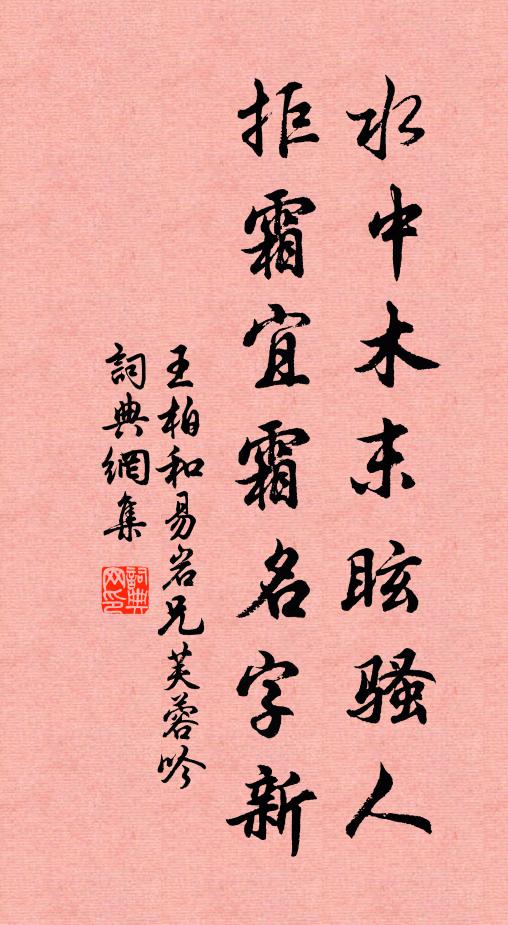 水中木末眩骚人
拒霜宜霜名字新
王柏和易岩兄芙蓉吟
詞典網集
詞典网印